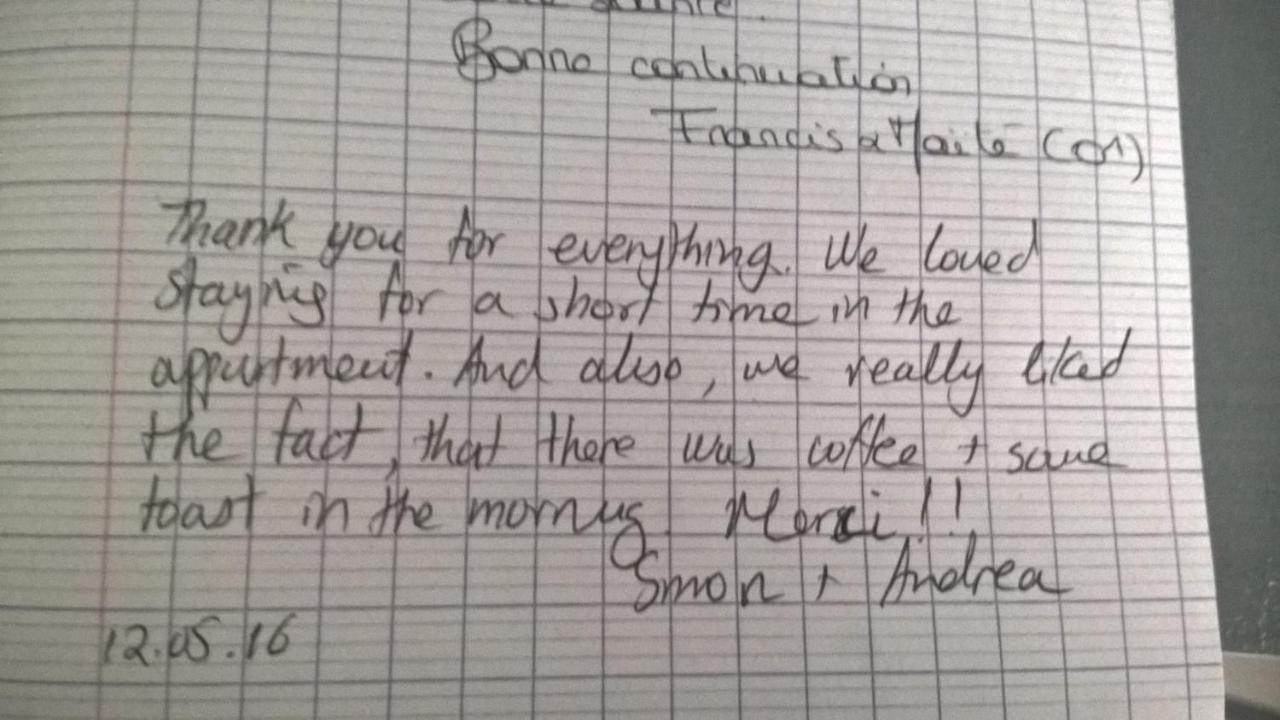 Bonne continuation
Francis & Maïté (01)
Thank you for everything. We loved
staying for a short time in the
appartment. And also, we really liked
the fact, that there was coffee + some
toast in the morning. Merci!!
Simon + Andrea
12.05.16